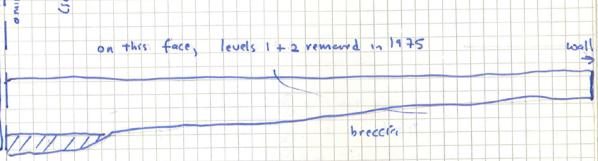 on this face, levels 1 + 2 removed in 1975
wall
breccia